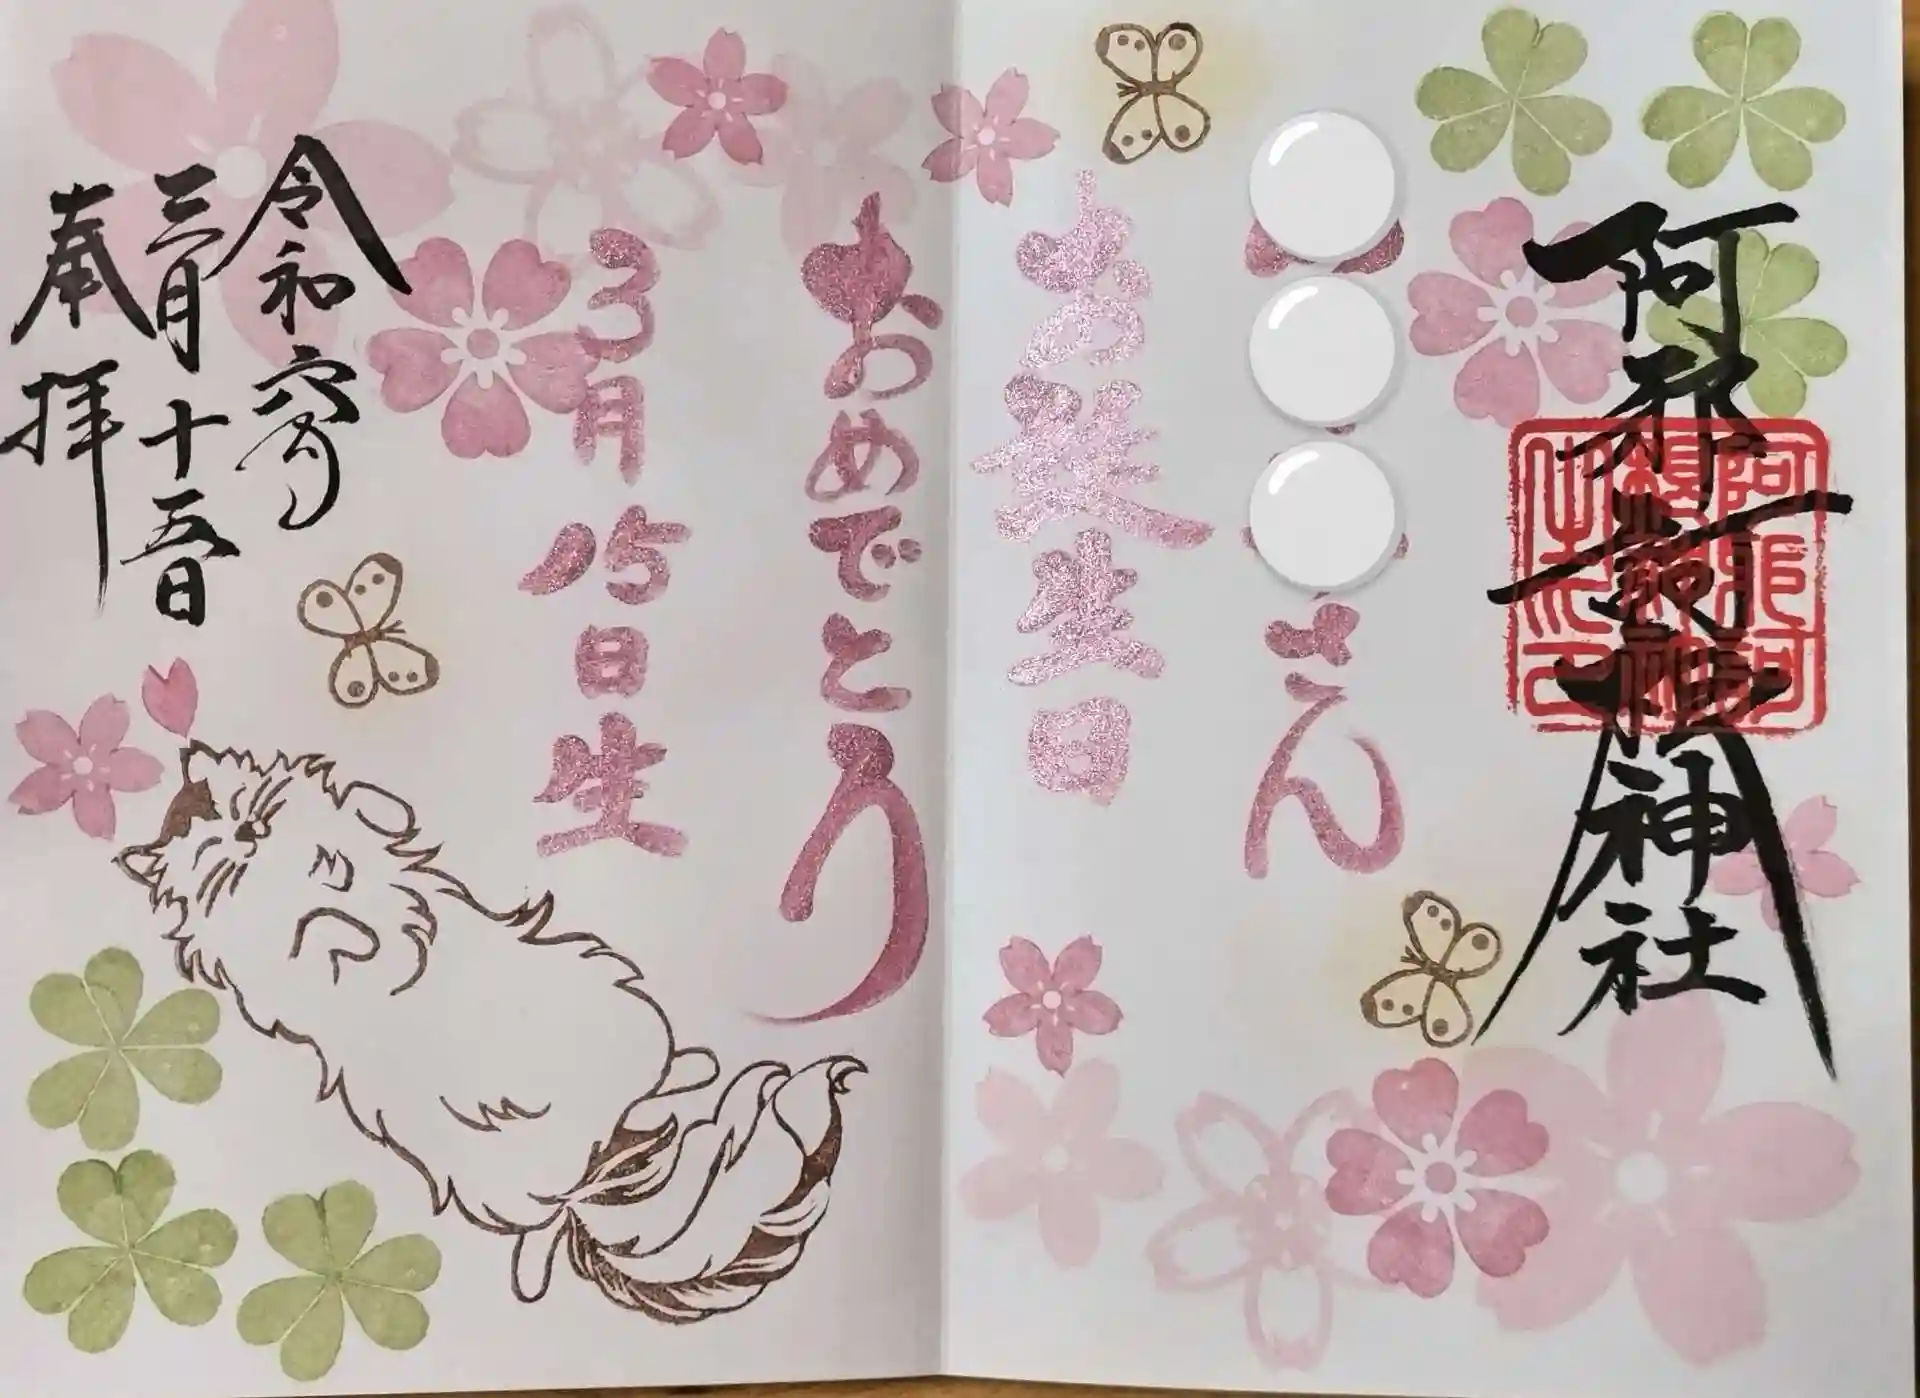 阿邪訶根神社
さん
お誕生日
おめでとう
3月15日生
令和六年
三月十五日
奉拝